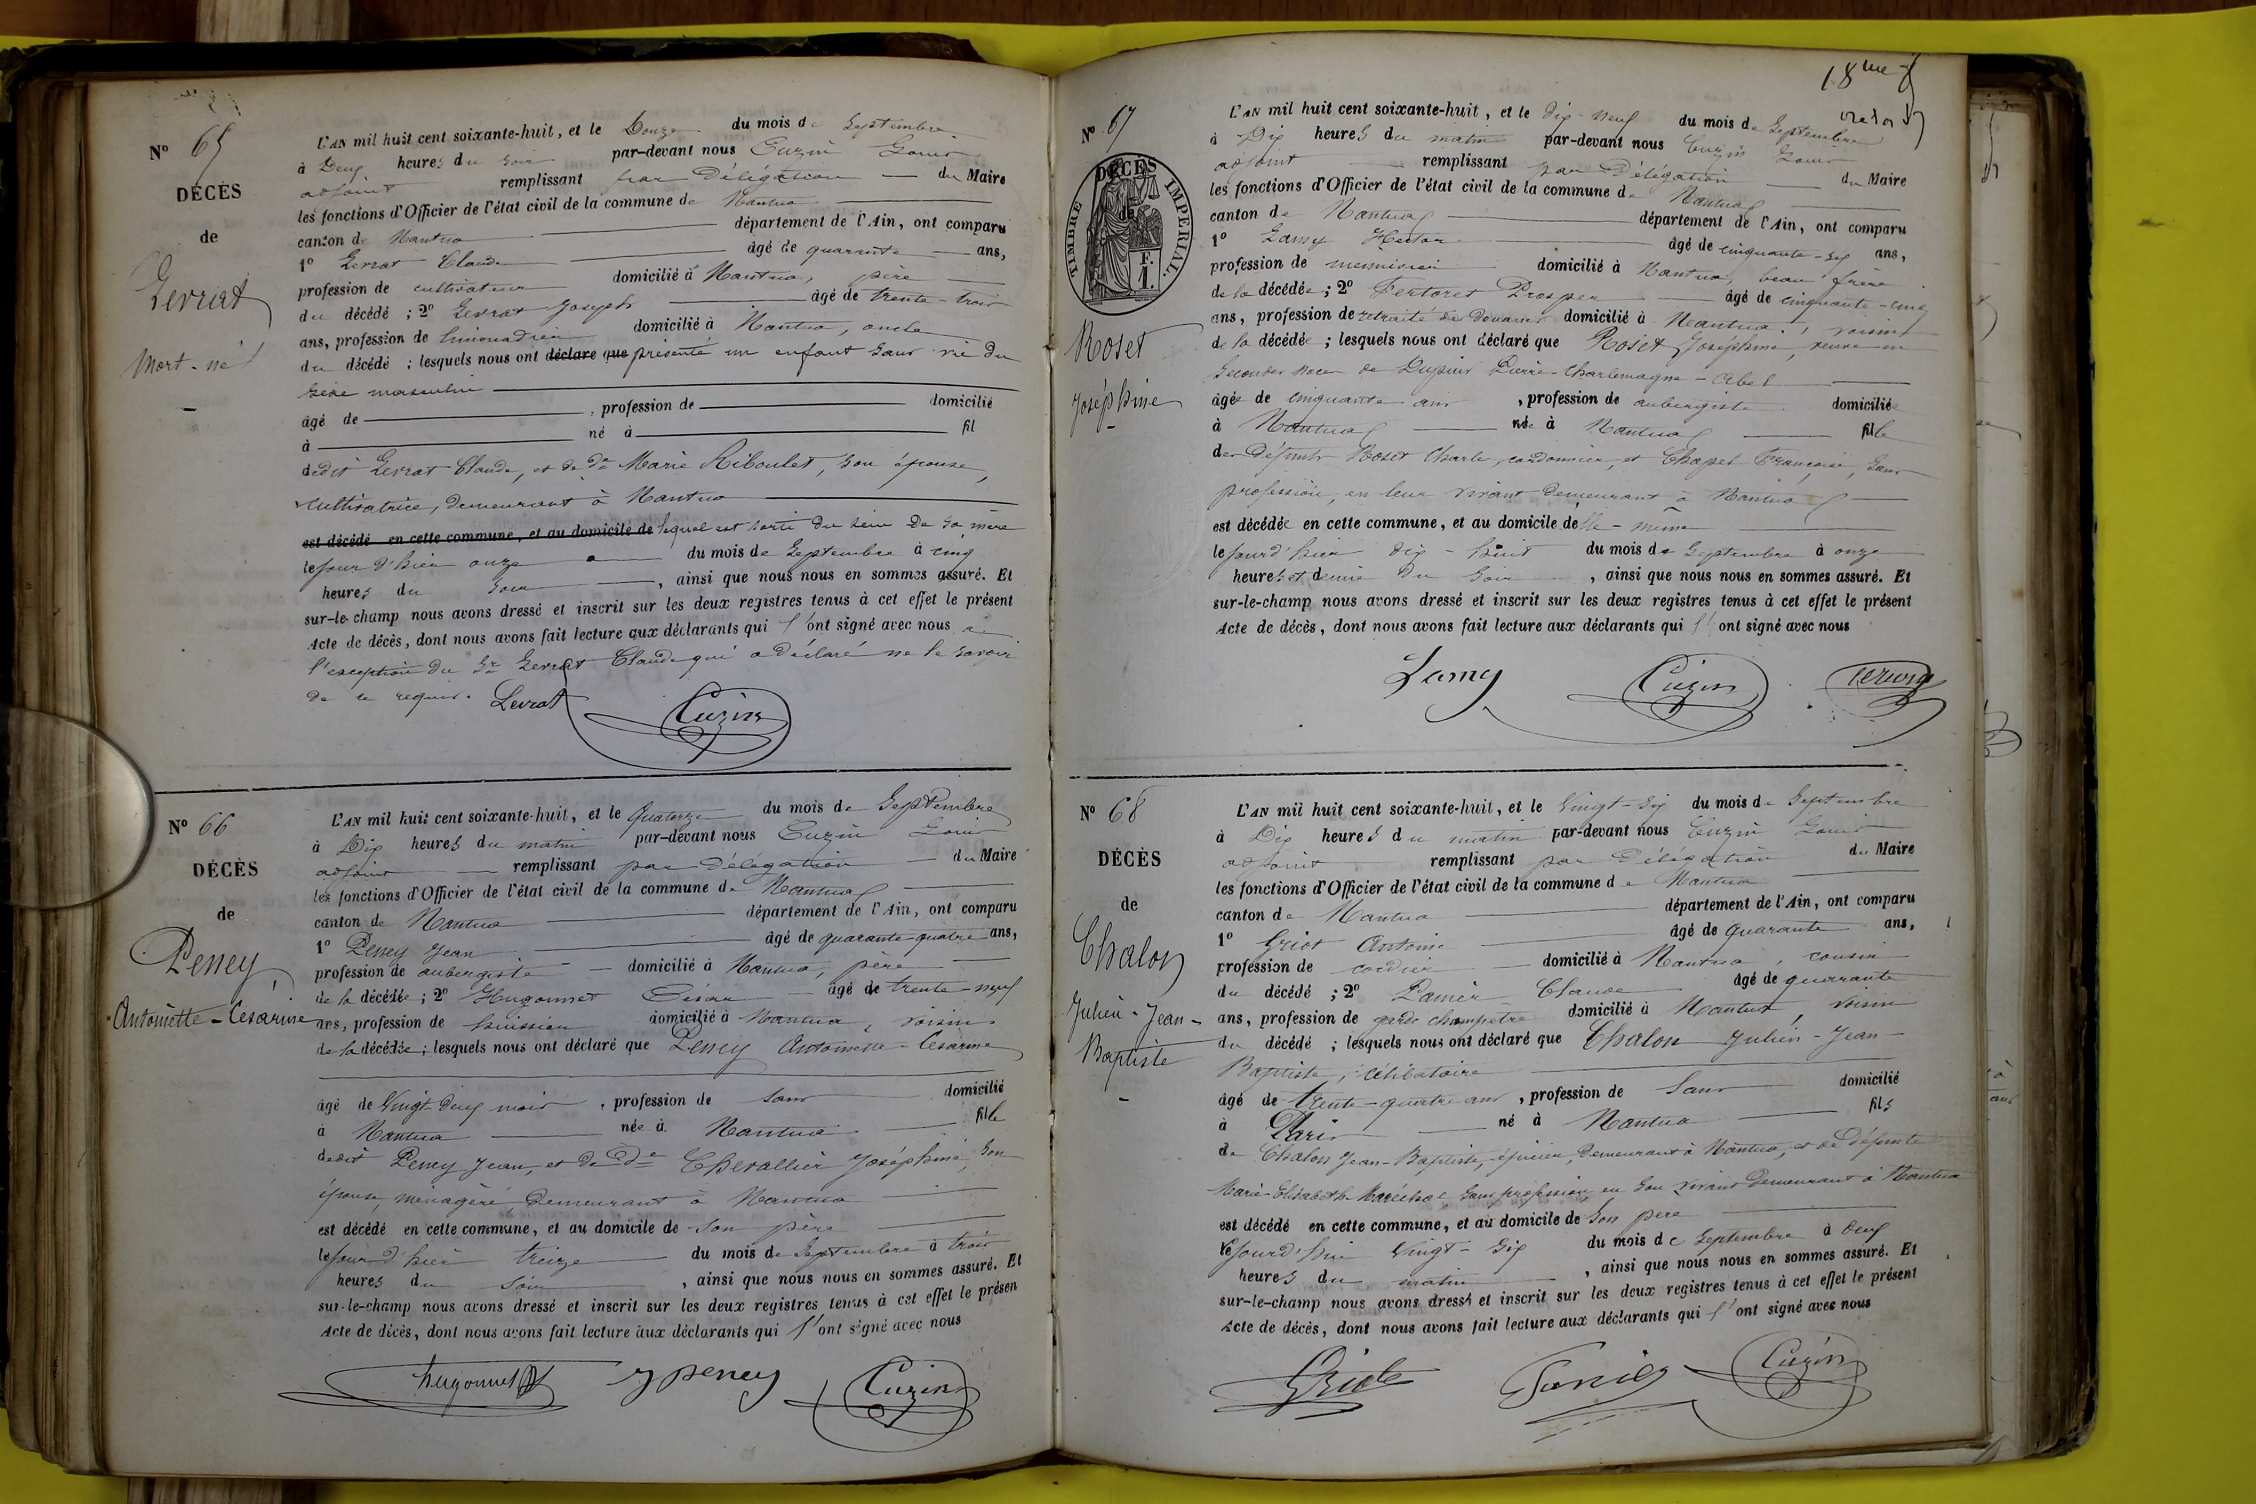 N° 65
DÉCÈS
de
Levrat
Mort-né
L'AN mil huit cent soixante-huit, et le Douze du mois de Septembre
à Deux heures du soir par-devant nous Cuzin Louis
adjoint remplissant par Délégation du Maire
les fonctions d'Officier de l'état civil de la commune de Nantua
canton de Nantua département de l'Ain, ont comparu
1° Levrat Claude âgé de quarante ans,
profession de cultivateur domicilié à Nantua, père
du décédé ; 2° Levrat Joseph âgé de trente-trois
ans, profession de limonadier domicilié à Nantua, oncle
du décédé ; lesquels nous ont déclaré que présenté un enfant sans vie du
sexe masculin
âgé de , profession de domicilié
à né à fil
dudit Levrat Claude, et de de Marie Riboulet, son épouse,
cultivatrice, demeurant à Nantua
est décédé en cette commune, et au domicile de lequel est sorti du sein de sa mère
le jour d'hier onze du mois de Septembre à cinq
heures du soir , ainsi que nous nous en sommes assuré. Et
sur-le-champ nous avons dressé et inscrit sur les deux registres tenus à cet effet le présent
Acte de décès, dont nous avons fait lecture aux déclarants qui l'ont signé avec nous à
l'exception du Sr Levrat Claude qui a déclaré ne le savoir
de ce requis. Levrat Cuzin
N° 66
DÉCÈS
de
Peney
Antoinette-Césarine
L'AN mil huit cent soixante-huit, et le Quatorze du mois de Septembre
à Dix heures du matin par-devant nous Cuzin Louis
adjoint remplissant par Délégation du Maire
les fonctions d'Officier de l'état civil de la commune de Nantua
canton de Nantua département de l'Ain, ont comparu
1° Peney Jean âgé de quarante-quatre ans,
profession de aubergiste domicilié à Nantua, père
de la décédée ; 2° Hugonnet César âgé de trente-neuf
ans, profession de huissier domicilié à Nantua, voisin
de la décédée ; lesquels nous ont déclaré que Peney Antoinette-Césarine
âgé de Vingt-deux mois , profession de sans domicilié
à Nantua née à Nantua fille
dudit Peney Jean, et de de Chevallier Joséphine, son
épouse, ménagère, demeurant à Nantua
est décédé en cette commune, et au domicile de son père
le jour d'hier treize du mois de Septembre à trois
heures du soir , ainsi que nous nous en sommes assuré. Et
sur-le-champ nous avons dressé et inscrit sur les deux registres tenus à cet effet le présen
Acte de décès, dont nous avons fait lecture aux déclarants qui l'ont signé avec nous
hugonnet J peney Cuzin
18me f
N° 67
DÉCÈS
de
TIMBRE IMPERIAL.
F.
1.
Roset
Joséphine
L'AN mil huit cent soixante-huit, et le dix-neuf du mois de Septembre
à Dix heures du matin par-devant nous Cuzin Louis
adjoint remplissant par Délégation du Maire
les fonctions d'Officier de l'état civil de la commune de Nantua
canton de Nantua département de l'Ain, ont comparu
1° Lamy Hector âgé de cinquante-six ans,
profession de menuisier domicilié à Nantua, beau frère
de la décédée ; 2° Prosper âgé de cinquante-cinq
ans, profession de retraité des Douanes domicilié à Nantua, voisin
de la décédée ; lesquels nous ont déclaré que Roset Joséphine, veuve en
secondes noces de Dupuis Pierre-Charlemagne-Abel
âgée de cinquante ans , profession de aubergiste domiciliée
à Nantua née à Nantua fille
des Défunts Roset Charle, cordonnier, et Chapel Françoise, sans
profession, en leur vivant demeurant à Nantua
est décédée en cette commune, et au domicile d'elle-même
le jour d'hier dix-huit du mois de Septembre à onze
heures et demie du soir , ainsi que nous nous en sommes assuré. Et
sur-le-champ nous avons dressé et inscrit sur les deux registres tenus à cet effet le présent
Acte de décès, dont nous avons fait lecture aux déclarants qui l'ont signé avec nous
Lamy Cuzin
N° 68
DÉCÈS
de
Chalon
Julien-Jean-
Baptiste
L'AN mil huit cent soixante-huit, et le Vingt-six du mois de Septembre
à Dix heures du matin par-devant nous Cuzin Louis
adjoint remplissant par Délégation du Maire
les fonctions d'Officier de l'état civil de la commune de Nantua
canton de Nantua département de l'Ain, ont comparu
1° Griot Antoine âgé de quarante ans,
profession de cordier domicilié à Nantua, cousin
du décédé ; 2° Claude âgé de quarante
ans, profession de garde champêtre domicilié à Nantua, voisin
du décédé ; lesquels nous ont déclaré que Chalon Julien-Jean-
Baptiste, célibataire
âgé de trente-quatre ans , profession de sans domicilié
à Paris né à Nantua fils
de Chalon Jean-Baptiste, épicier, demeurant à Nantua, et de défunte
Marie-Elisabeth Maréchal sans profession en son vivant demeurant à Nantua
est décédé en cette commune, et au domicile de son père
le jourd'hui Vingt-six du mois de Septembre à deux
heures du matin , ainsi que nous nous en sommes assuré. Et
sur-le-champ nous avons dressé et inscrit sur les deux registres tenus à cet effet le présent
Acte de décès, dont nous avons fait lecture aux déclarants qui l'ont signé avec nous
Griot Cuzin